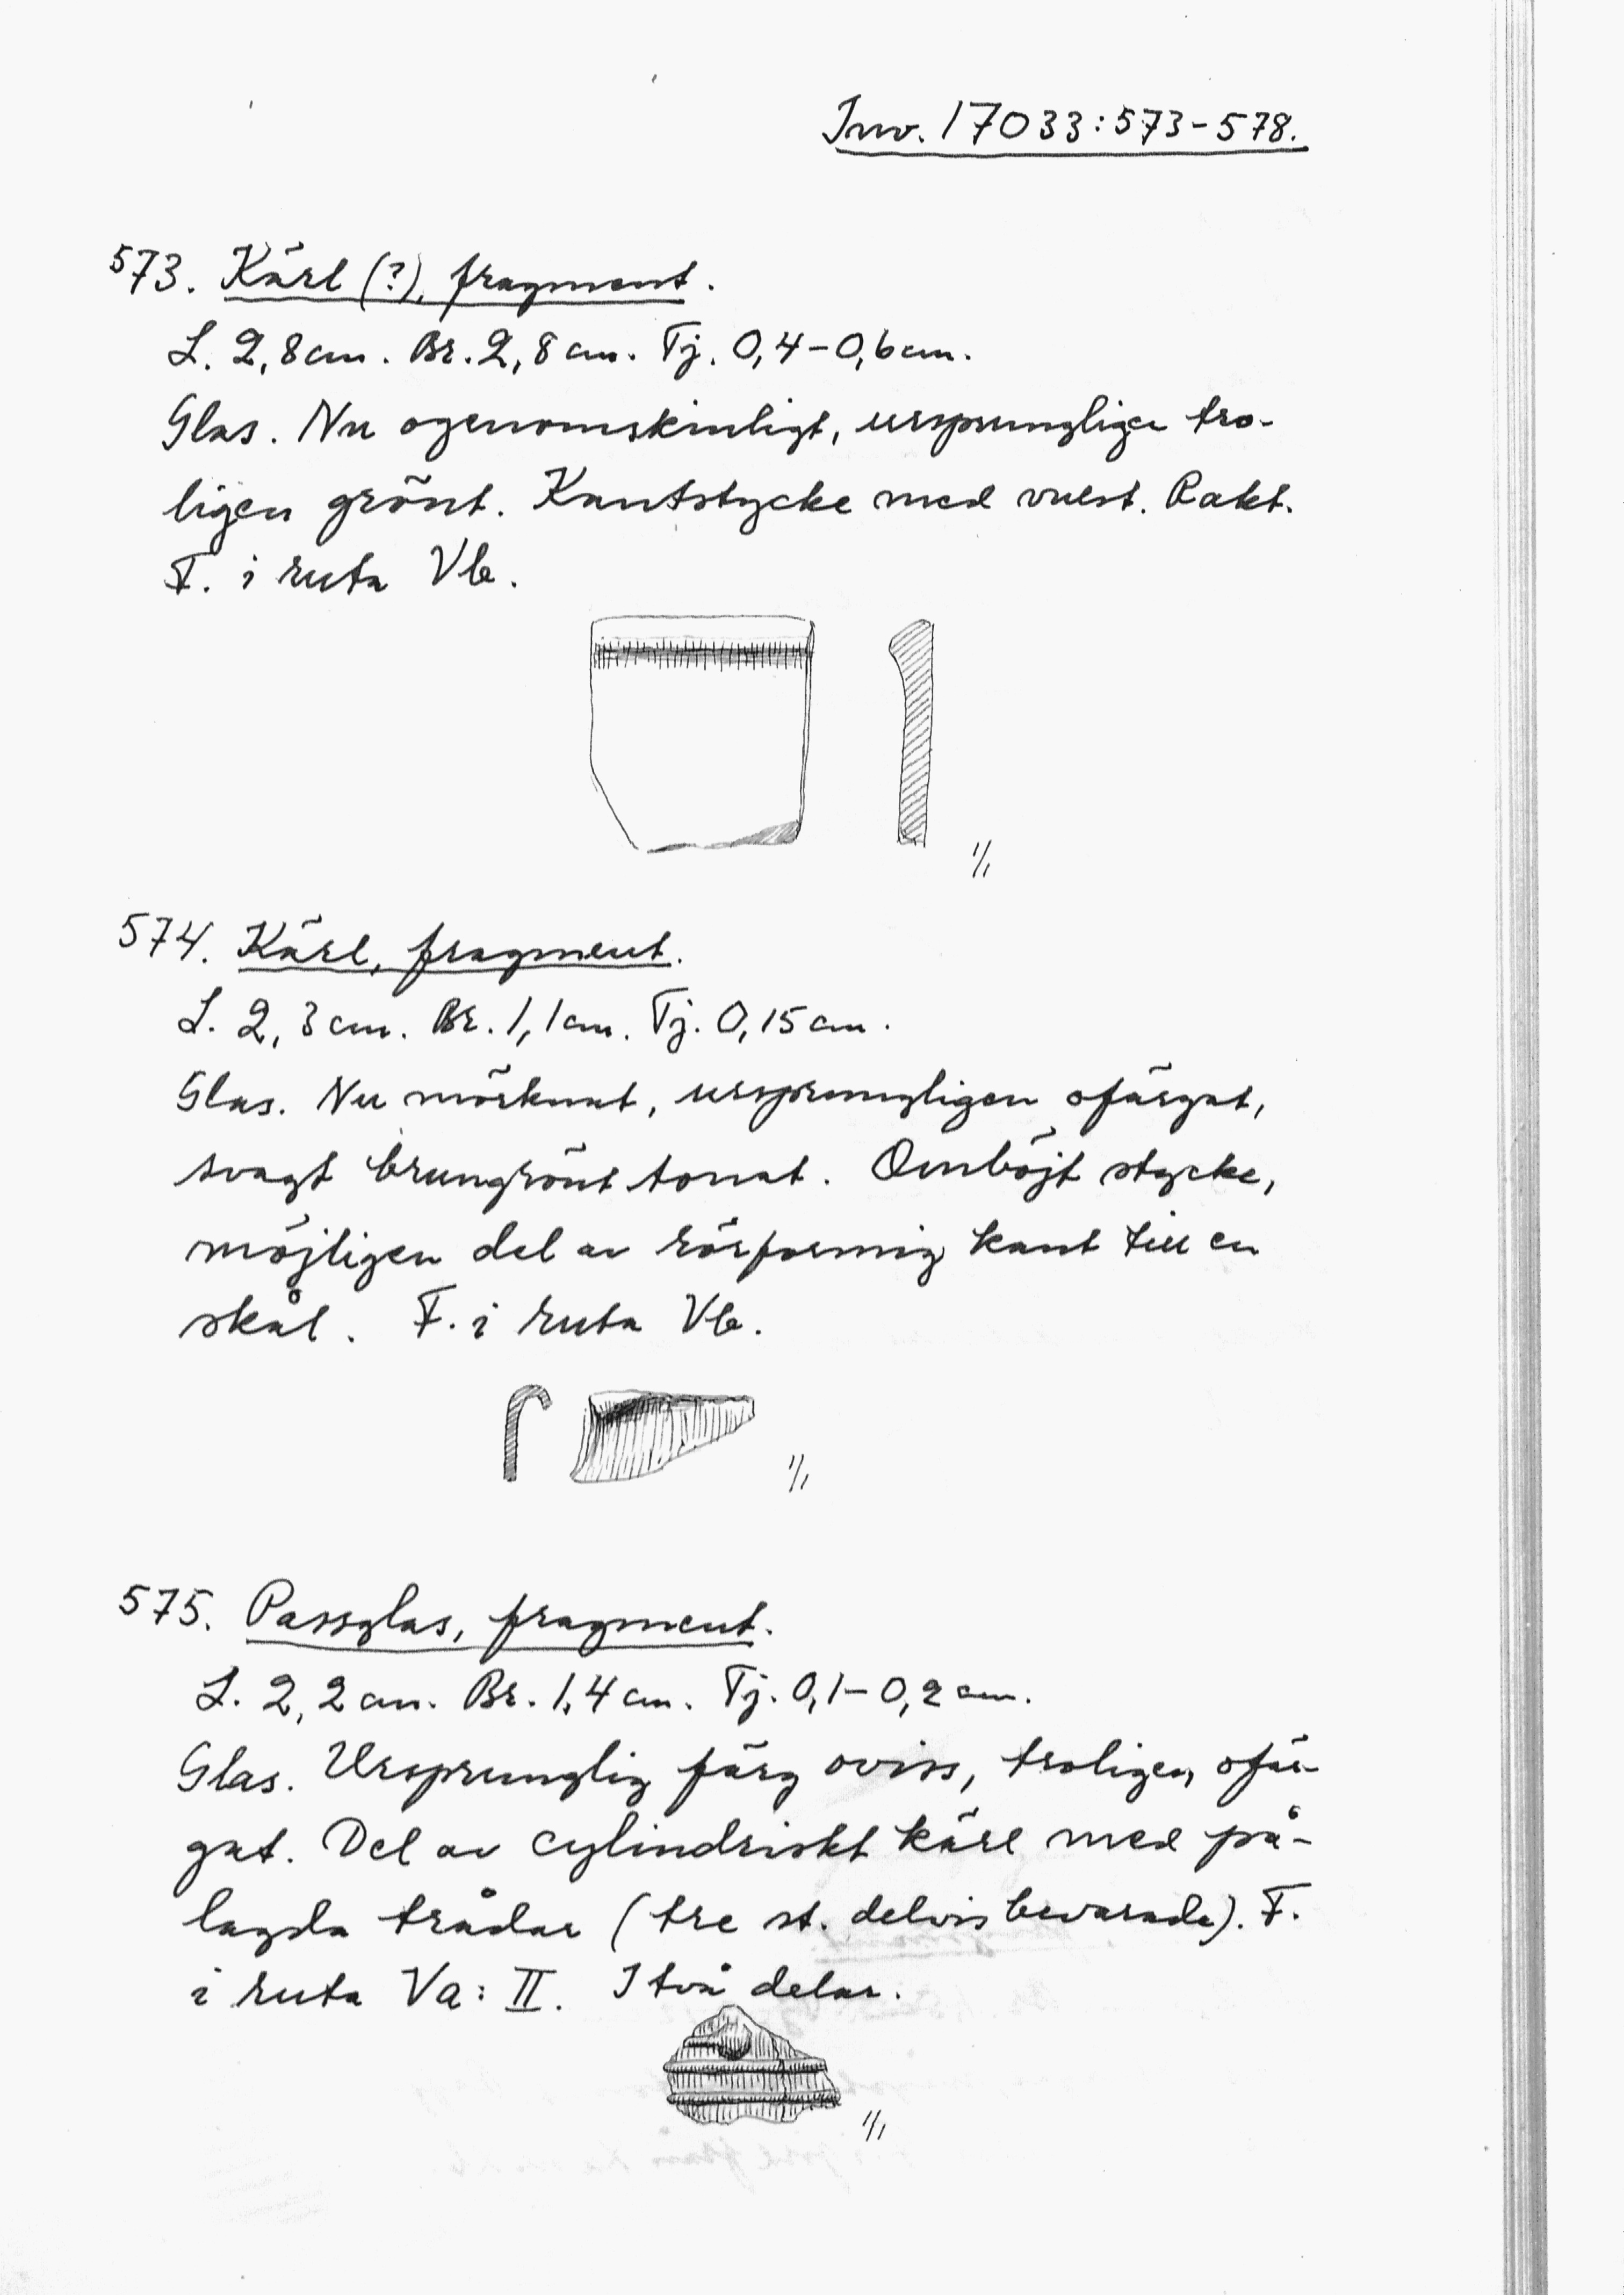 Inv. 17033:573-578.
573. Kärl (?), fragment.
L. 2,8 cm. Br. 2,8 cm. Tj. 0,4-0,6 cm.
Glas. Nu ogenomskinligt, ursprungligen tro-
ligen grönt. Kantstycke med vulst. Rakt.
F. i ruta Vb.
1/1
574. Kärl, fragment.
L. 2,3 cm. Br. 1,1 cm. Tj. 0,15 cm.
Glas. Nu mörknat, ursprungligen ofärgat,
svagt brungrönt tonat. Omböjt stycke,
möjligen del av rörformig kant till en
skål. F. i ruta Vb.
1/1
575. Passglas, fragment.
L. 2,2 cm. Br. 1,4 cm. Tj. 0,1-0,2 cm.
Glas. Ursprunglig färg oviss, troligen ofär-
gat. Del av cylindriskt kärl med på-
lagda trådar (tre st. delvis bevarade). F.
i ruta Va: II. I två delar.
1/1